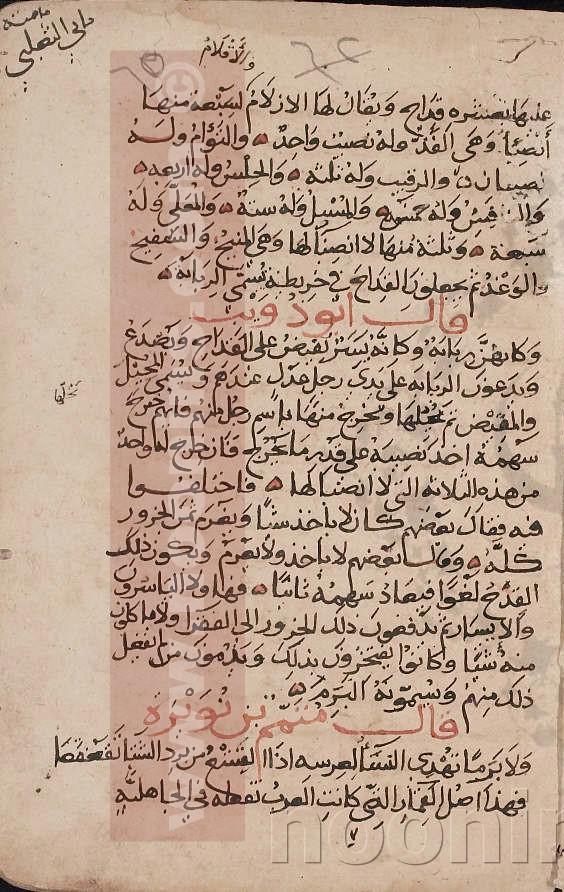 ما صنه
والأقلام
عليها بعشره قداح ويقال لها الازلام لسبعة منها
أنصباء وهي الفذّ وله نصيب واحد والتوأم وله
نصيبان والرقيب وله ثلثة والحلس وله اربعه
والنافس وله خمسة والمسبل وله ستة والمعلّى وله
سبعة وثلثة منها لا انصبا لها وهي المنيح والسفيح
والوغد ثم يجعلون القداح في خريطة تسمى الربابة
قال ابو ذويب
وكانهنّ ربابة وكانّه يَسَرٌ يفيض على القداح ويصدع
ويدعون الربابة على يدي رجل عدل عندهم ويسمى المجيل
يجلها
والمفيض ثم يجيلها ويخرج منها باسم رجل منهم فايهم خرج
سهمه اخذ نصيبه على قدر ما يخرج فان خرج له واحد
من هذه الثلاثة التي لا انصبا لها فاختلفوا
فيه فقال بعضهم كان لا ياخذ شيا ويغرم ثمن الجزور
كلّه وقال بعضهم لا ياخذ ولا يغرم ويكون ذلك
القدح لغوا فيعاد سهمه ثانيا فهاولا الياسرون
والايسار ثم يدفعون ذلك الجزور الى الفقرا ولا ياكلون
منه شيا وكانوا يفتخرون بذلك ويذمون من لم يفعل
ذلك منهم ويسمّونه البرم
قال متمّم بن نويره
ولا برما تهدي النسا لعرسه اذا القشع من برد الشتا تقعقعا
فهذا اصل القمار التي كانت العرب تفعله في الجاهلية
٧
noonin